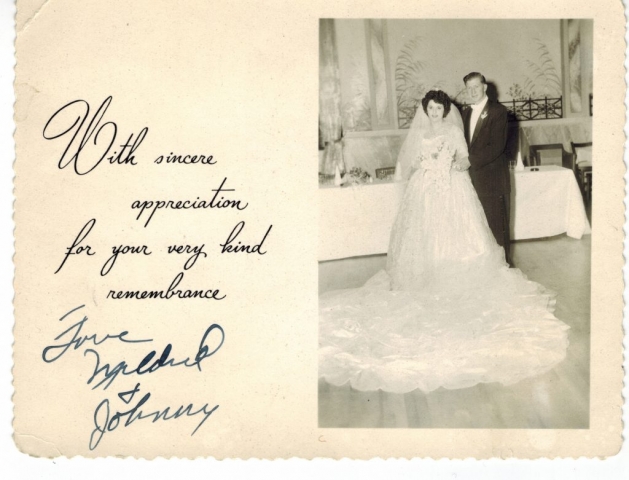 With sincere
appreciation
for your very kind
remembrance
Love
Mildred
+
Johnny